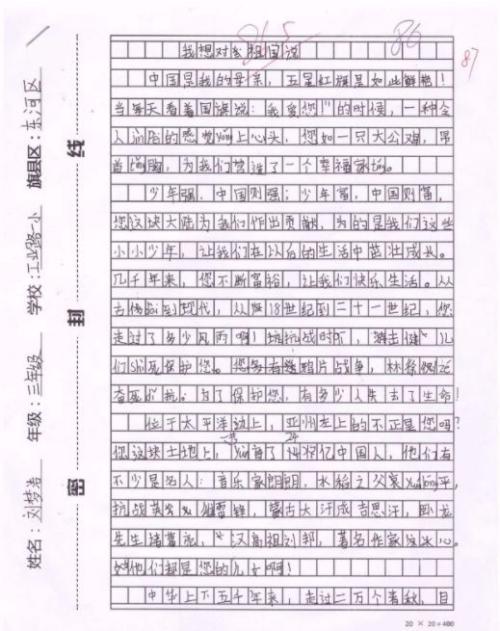 86.5
86
87
我想对您祖国说
中国是我的母亲，五星红旗是如此鲜艳！
当每天看着国旗说：我爱您"的时候，一种令
人的感觉yǒng上心头，您如一只大公鸡，昂
首tǐng胸，为我们营造了一个幸福家
少年强，中国则强；少年富，中国则富，
您这块大陆为我们作出贡献，为的是我们这些
小小少年，让我们在以后的生活中茁壮成长。
几千年来，您不断富裕，让我们快乐生活。从
古到现代，从18世纪到二十一世纪，您
走过了多少风雨啊！抗战时所，游击健儿
们保护您。鸦片战争，林
抗。为了保护您，有多少人失去了生命！
位于太平洋边上，亚州左上的不正是您吗？
您这块土地上，Yùn育了14亿中国人，他们有
不少是名人：音乐家朗朗，水稻之父袁lóng平，
抗战英雷锋，蒙古大汗成吉思汗，卧龙
先生诸葛，汉高祖刘邦，著名作家冰心。
他们都是您的儿女啊！
中华上下五千年来，走过二万个春秋，目
20 × 20 = 400
线
封
密
旗县区：东河区
学校：工业路一小
年级：三年级
姓名：刘梦